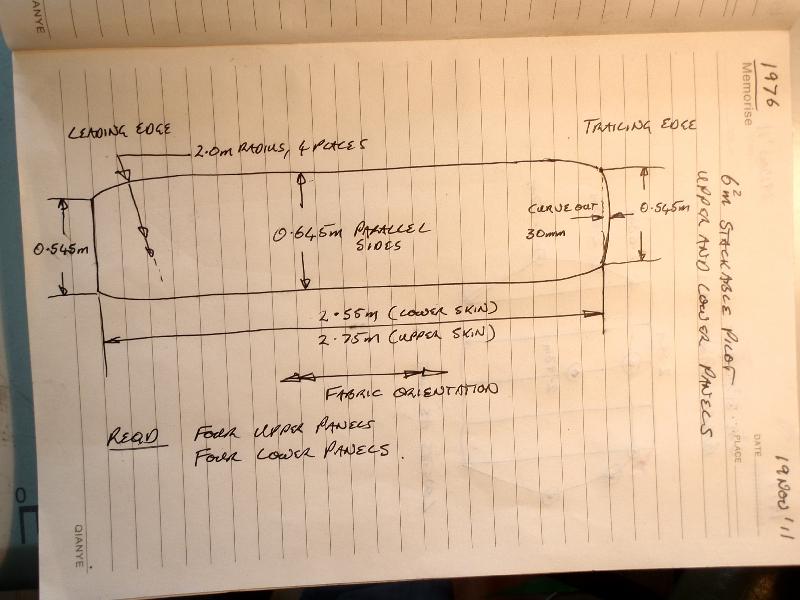 1976
Memorise
6²m STACKABLE PILOT
UPPER AND LOWER PANELS
DATE
PLACE
19 NOV '11
LEADING EDGE
TRAILING EDGE
2.0m RADIUS, 4 PLACES
0.545m
0.645m PARALLEL
SIDES
CURVE OUT
30mm
0.545m
2.55m (LOWER SKIN)
2.75m (UPPER SKIN)
FABRIC ORIENTATION
REQD FOUR UPPER PANELS
FOUR LOWER PANELS.
QIANYE
QIANYE
0